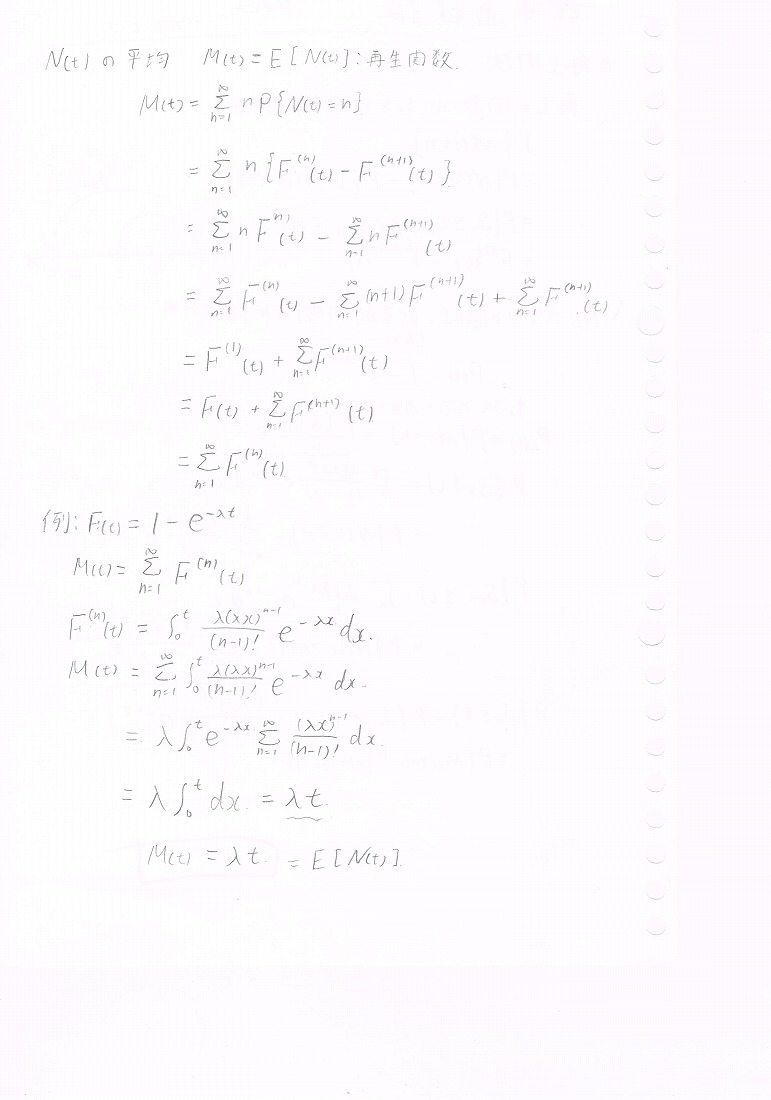 N(t) の平均 M(t) = E[N(t)] : 再生関数.
M(t) = ∑_{n=1}^{∞} n P{N(t) = n}
= ∑_{n=1}^{∞} n {F^{(n)}(t) − F^{(n+1)}(t)}
= ∑_{n=1}^{∞} n F^{(n)}(t) − ∑_{n=1}^{∞} n F^{(n+1)}(t)
= ∑_{n=1}^{∞} F^{(n)}(t) − ∑_{n=1}^{∞} (n+1) F^{(n+1)}(t) + ∑_{n=1}^{∞} F^{(n+1)}(t)
= F^{(1)}(t) + ∑_{n=1}^{∞} F^{(n+1)}(t)
= F(t) + ∑_{n=1}^{∞} F^{(n+1)}(t)
= ∑_{n=1}^{∞} F^{(n)}(t)
例: F(t) = 1 − e^{−λt}
M(t) = ∑_{n=1}^{∞} F^{(n)}(t)
F^{(n)}(t) = ∫_0^t \frac{λ(λx)^{n-1}}{(n-1)!} e^{−λx} dx.
M(t) = ∑_{n=1}^{∞} ∫_0^t \frac{λ(λx)^{n-1}}{(n-1)!} e^{−λx} dx.
= λ ∫_0^t e^{−λx} ∑_{n=1}^{∞} \frac{(λx)^{n-1}}{(n-1)!} dx.
= λ ∫_0^t dx. = λt.
M(t) = λt. = E[N(t)].